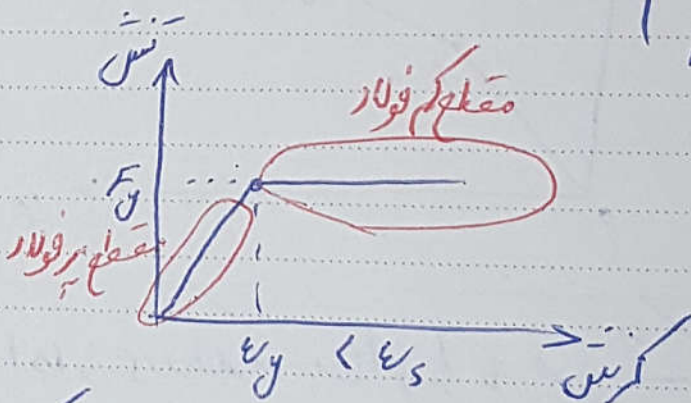 تنش
مقطع کم فولاد
Fy
مقطع پر فولاد
εy < εs
کرنش